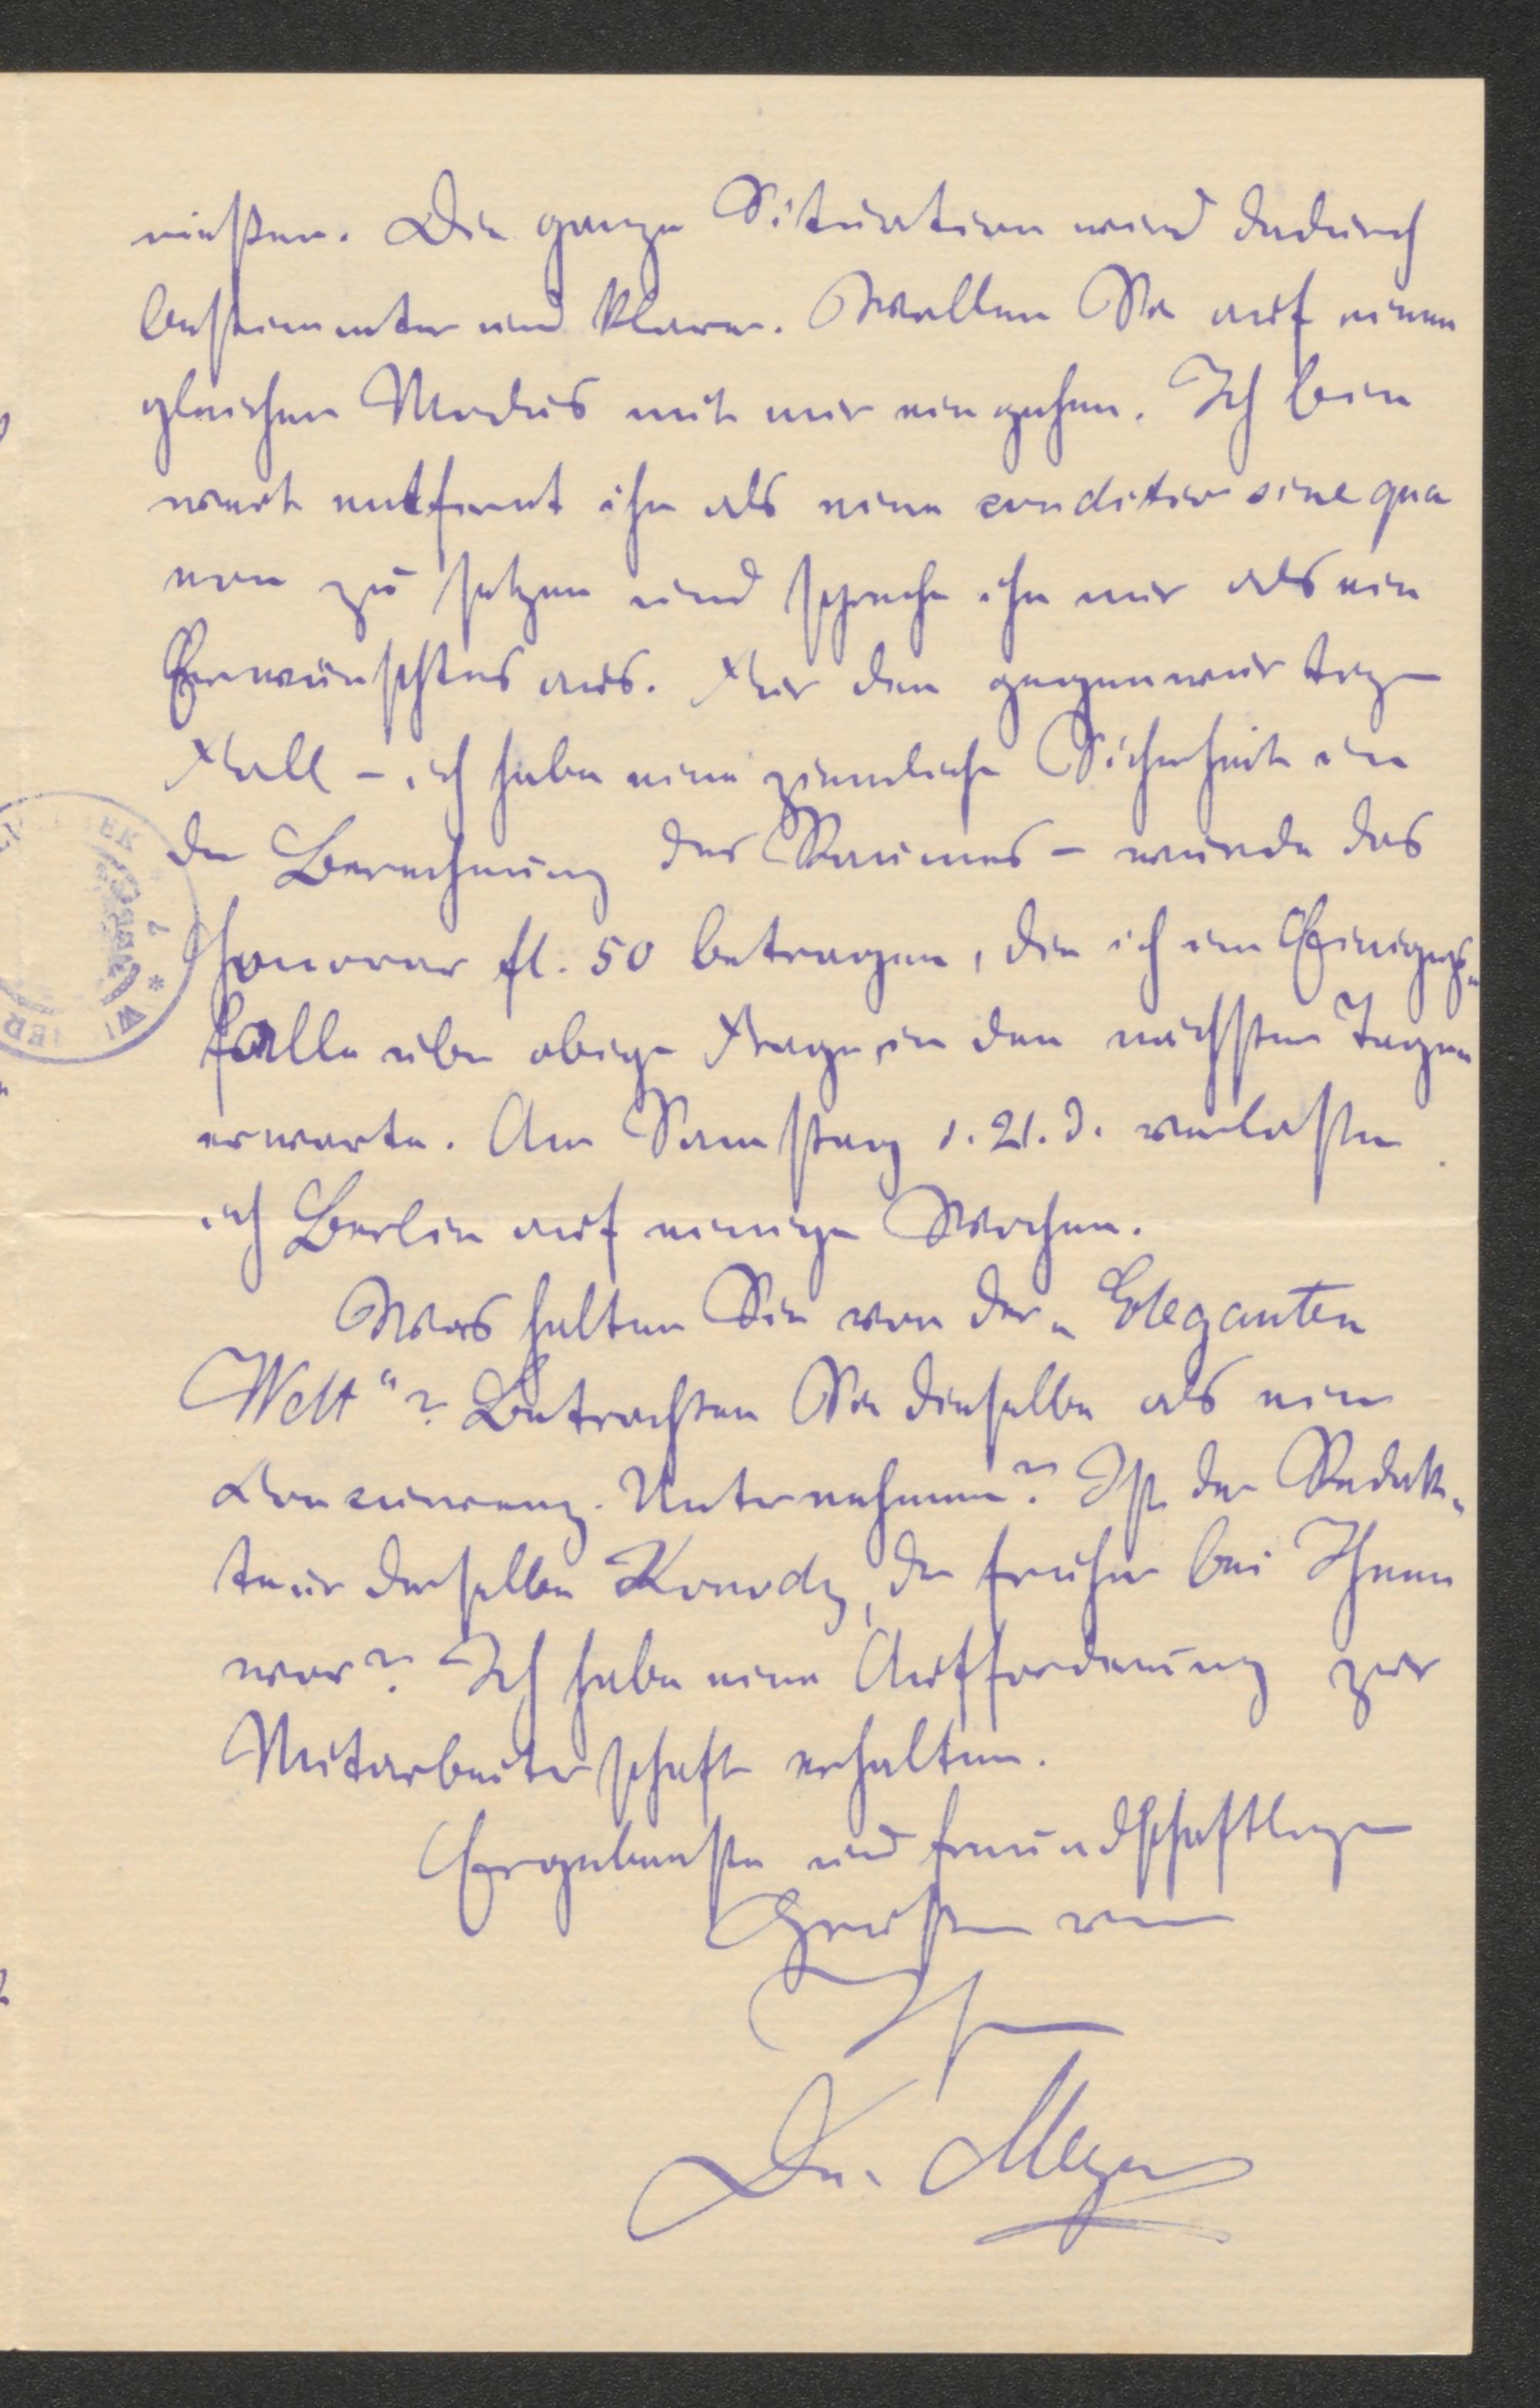 müßen. Die ganze Situation wird dadurch
bestimmter und klarer. Wollen Sie auf einen
gleichen Modus mit mir eingehen. Ich bin
weit entfernt ihn als eine conditio sine qua
non zu setzen und spreche ihn nur als ein
Erwünschtes aus. Für den gegenwärtigen
Fall – ich habe eine ziemliche Sicherheit in
der Berechnung des Raumes – würde das
Honorar fl. 50 betragen, die ich im Einigungs-
falle über obige Frage in den nächsten Tagen
erwarte. Am Samstag d. 21. d. verlaße
ich Berlin auf einige Wochen.
Was halten Sie von der „Eleganten
Welt“? Betrachten Sie dieselbe als ein
Concurrenz-Unternehmen? Ist der Redak-
teur derselben, der früher bei Ihnen
war? Ich habe eine Aufforderung zur
Mitarbeiterschaft erhalten.
Ergebenste und freundschaftlichen
Grüßen von
Ihrem
Dr. Meyer